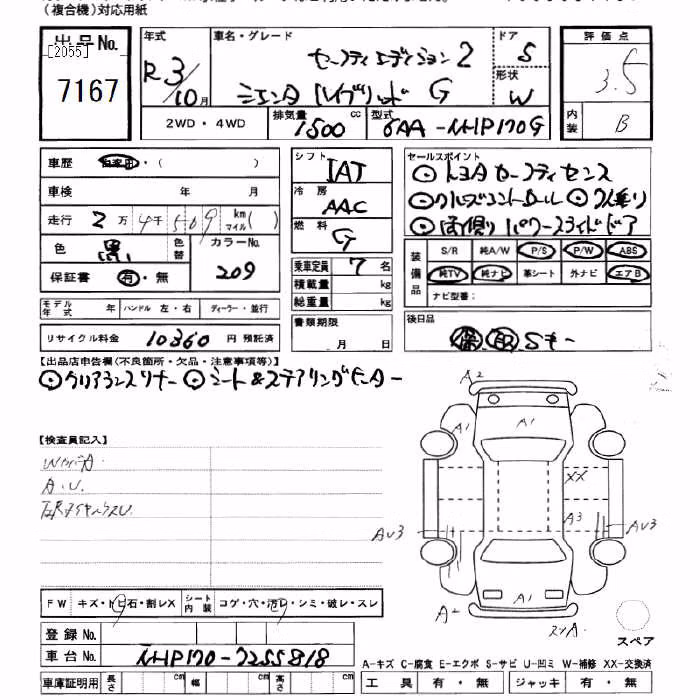 (複合機)対応用紙
出品No.
[2055]
7167
年式
R3/10月
車名・グレード
セーフティエディション2
シエンタ ハイブリッド G
ドア
5
形状
W
評価点
3.5
内装
B
2WD・4WD
排気量 1500 cc
型式 6AA-NHP170G
車歴 自家用・( )
車検 年 月
走行 2万4千509 km マイル( )
色 黒 色替
カラーNo. 209
保証書 有・無
モデル年式 年 ハンドル 左・右 ディーラー・並行
リサイクル料金 10360 円 預託済
シフト IAT
冷房 AAC
燃料 G
乗車定員 7 名
積載量 kg
総重量 kg
書類期限 月 日
セールスポイント
◎トヨタセーフティセンス
◎クルーズコントロール ◎7人乗り
◎両側パワースライドドア
装備品
S/R 純A/W P/S P/W ABS
純TV 純ナビ 革シート 外ナビ エアB
ナビ型番:
後日品
保 取 Sキー
【出品店申告欄(不良箇所・欠品・注意事項等)】
◎クリアランスソナー ◎シート&ステアリングヒーター
【検査員記入】
A.U.
FW キズ・トビ石・割レX シート内装 コゲ・穴・汚レ・シミ・破レ・スレ
登録No.
車台No. NHP170-7255818
車庫証明用 長さ cm 幅 cm 高さ cm
A2
A1
A1
XX
A3
AU3
AU3
A1
A2
スリA.
スペア
A-キズ C-腐食 E-エクボ S-サビ U-凹ミ W-補修 XX-交換済
工具 有・無 ジャッキ 有・無